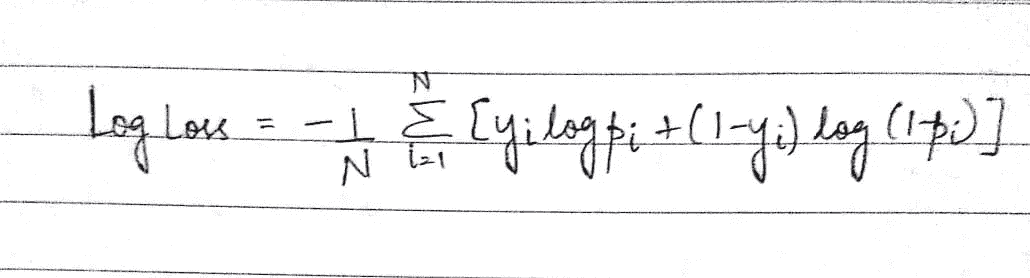 Log Loss = - 1/N Σ_{i=1}^{N} [y_i log p_i + (1-y_i) log (1-p_i)]